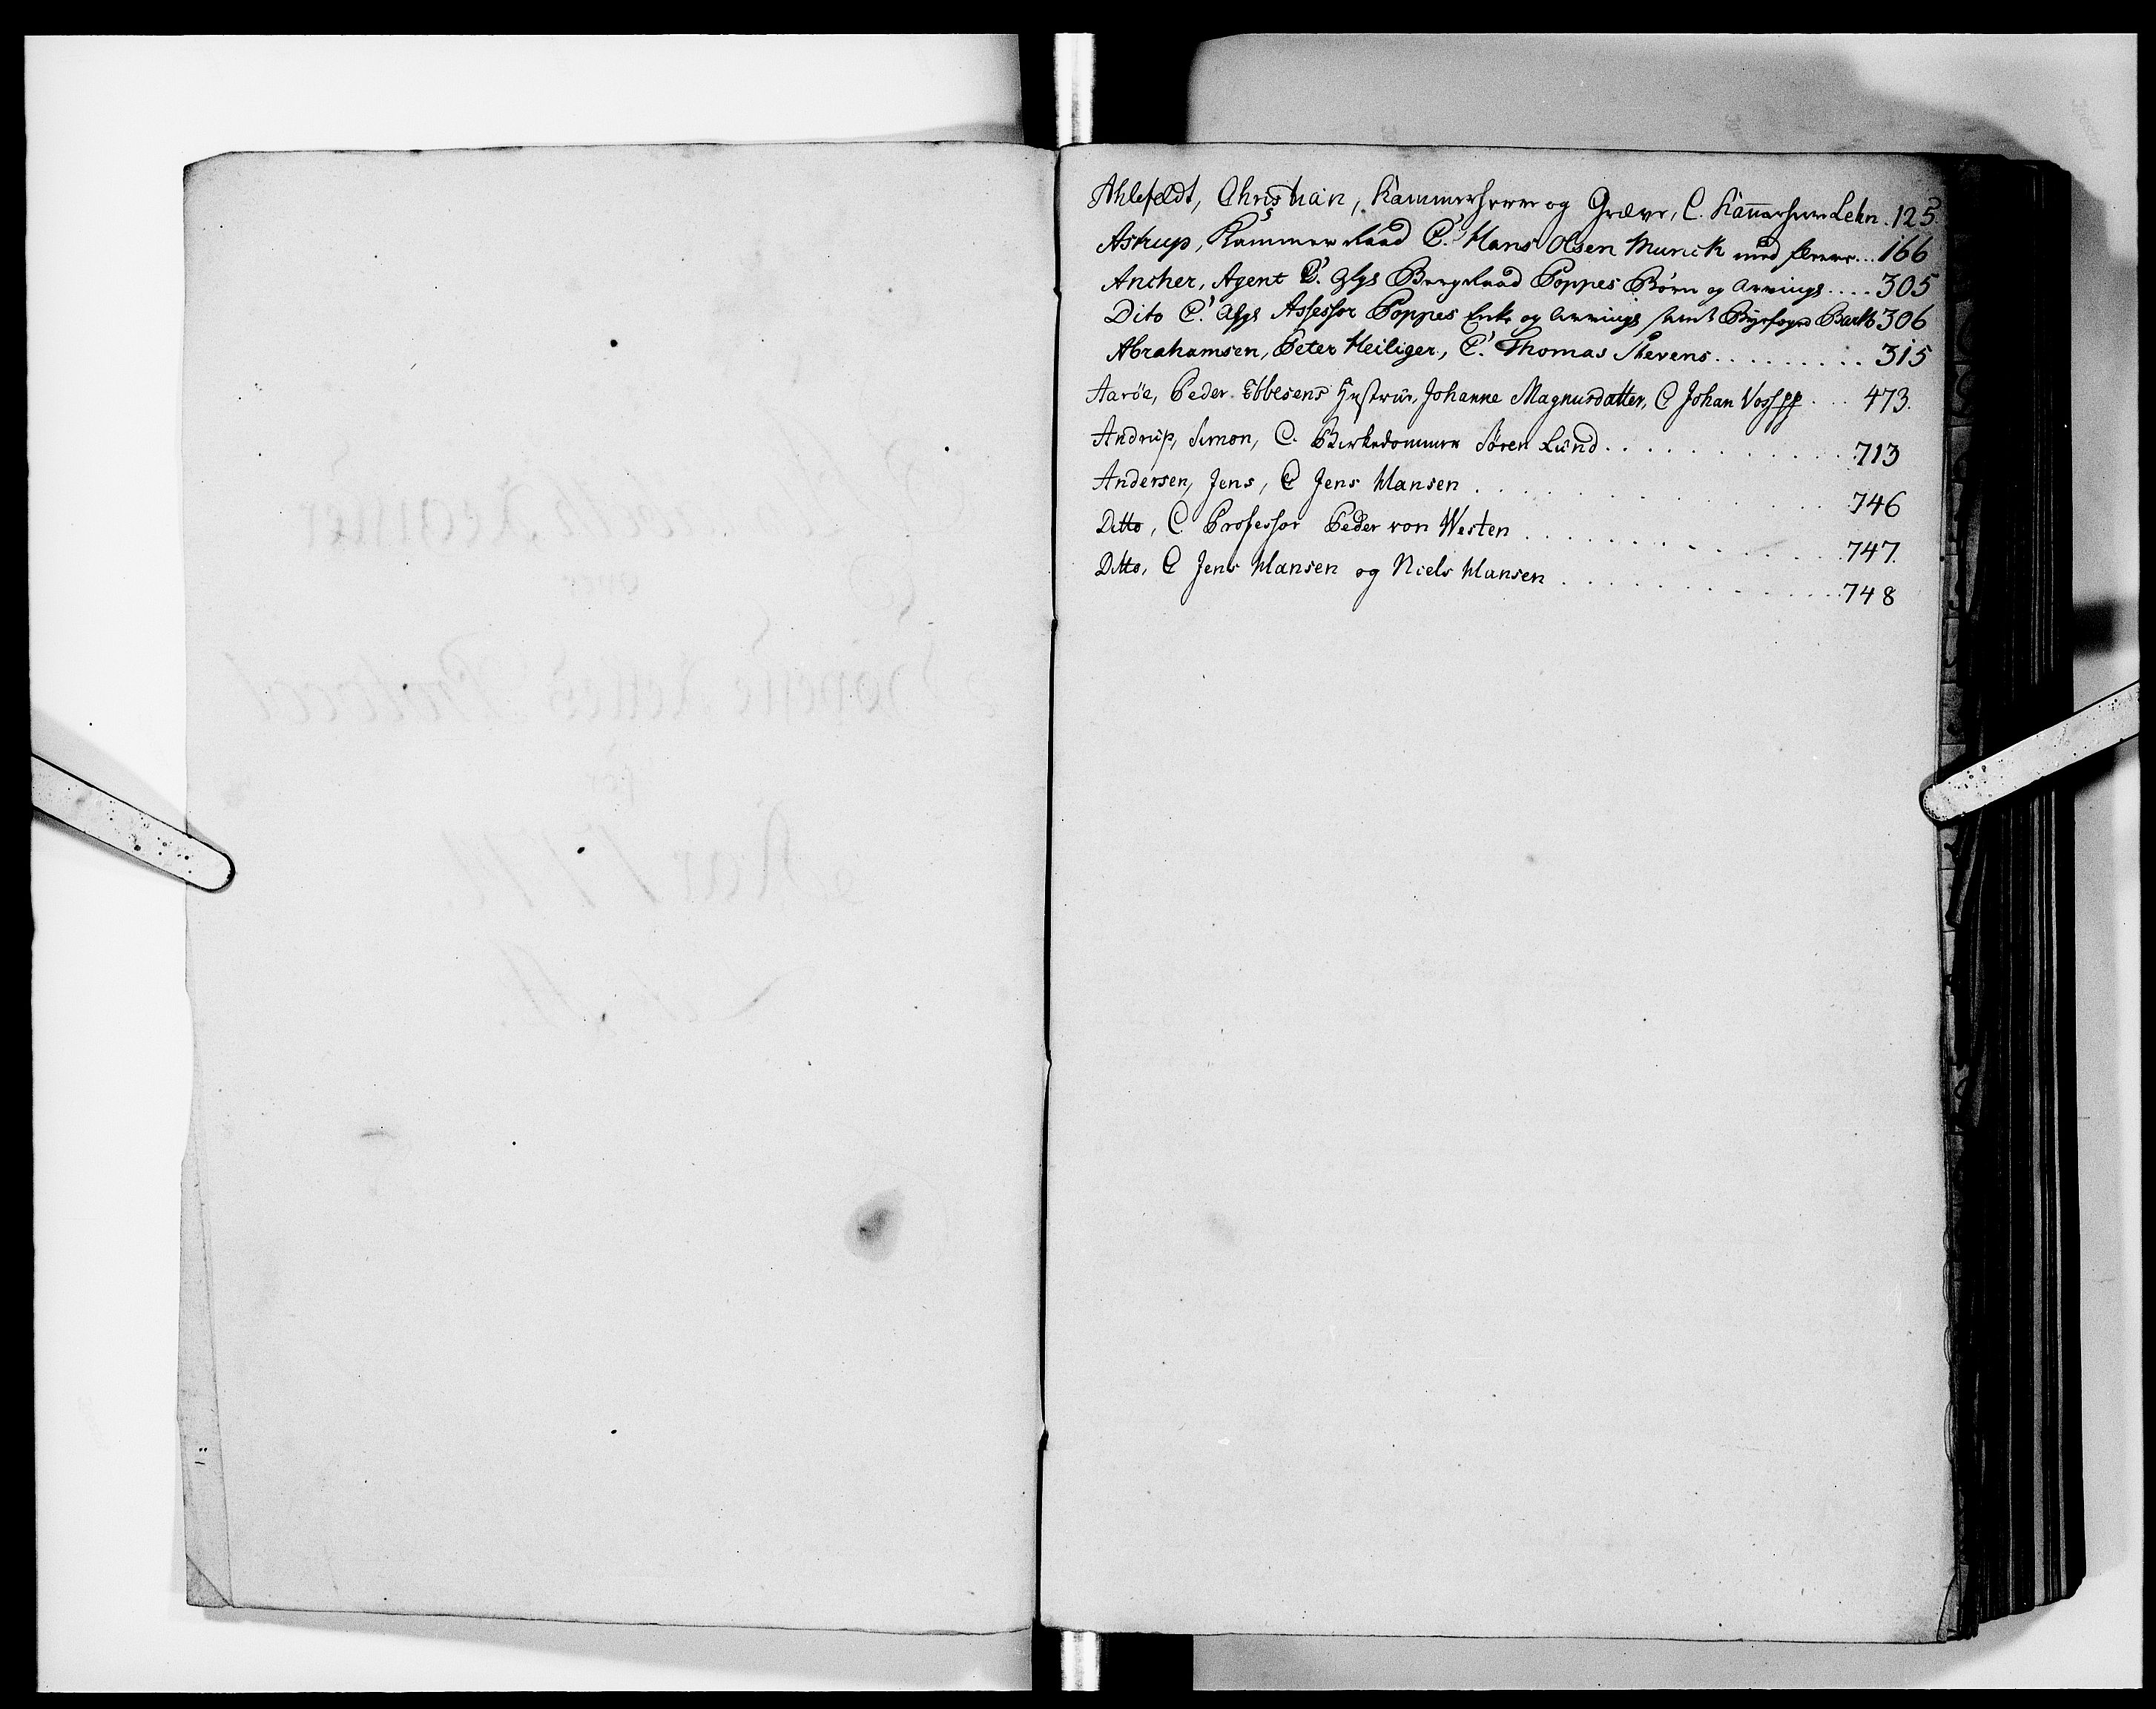 Ahlefeldt, Christian, Kammerherre og Greve, C. Kam̅erherre Lehn . 125.
Astrup, Kammerraad C. Hans Olsen Munck med flere ... 166
Ancher, Agent C. Afgl Bergraad Poppes Børn og Arvinge .... 305
Dito C. Afgl Assessor Poppes Enke og Arvinge samt Byefoged Barth 306
Abrahamsen, Peter Heiliger, C. Thomas Stevens ......... 315
Aarøe, Peder Ebbesens Hustrue, Johanne Magnusdatter, C Johan Voss pp ... 473.
Andrup, Simon, C. Birkedommer Søren Lund ............ 713
Andersen, Jens, C Jens Hansen ............ 746
Ditto, C Professor Peder von Westen ............ 747.
Ditto, C Jens Hansen og Niels Hansen ............ 748